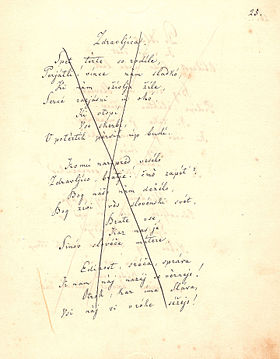 23.
Zdravljica.
Spet terte so rodile,
Prijatli, vince nam sladkó,
Ki nam oživlja žile,
Sercé razjasni in oko,
Ki vtopi
Vse skerbi,
V potertih persih up budi.
Komú narpred veselo
Zdravljico, bratje! čmo zapét'?
Bog našo nam deželo,
Bog živi ves slovenski svét,
Brate vse,
Kar nas je
Sinov slovéče matere.
Edinost, sréča, sprava
K nam naj nazaj se vernejo!
Otrok kar ima Slava,
Vsi naj si v róke séžejo!